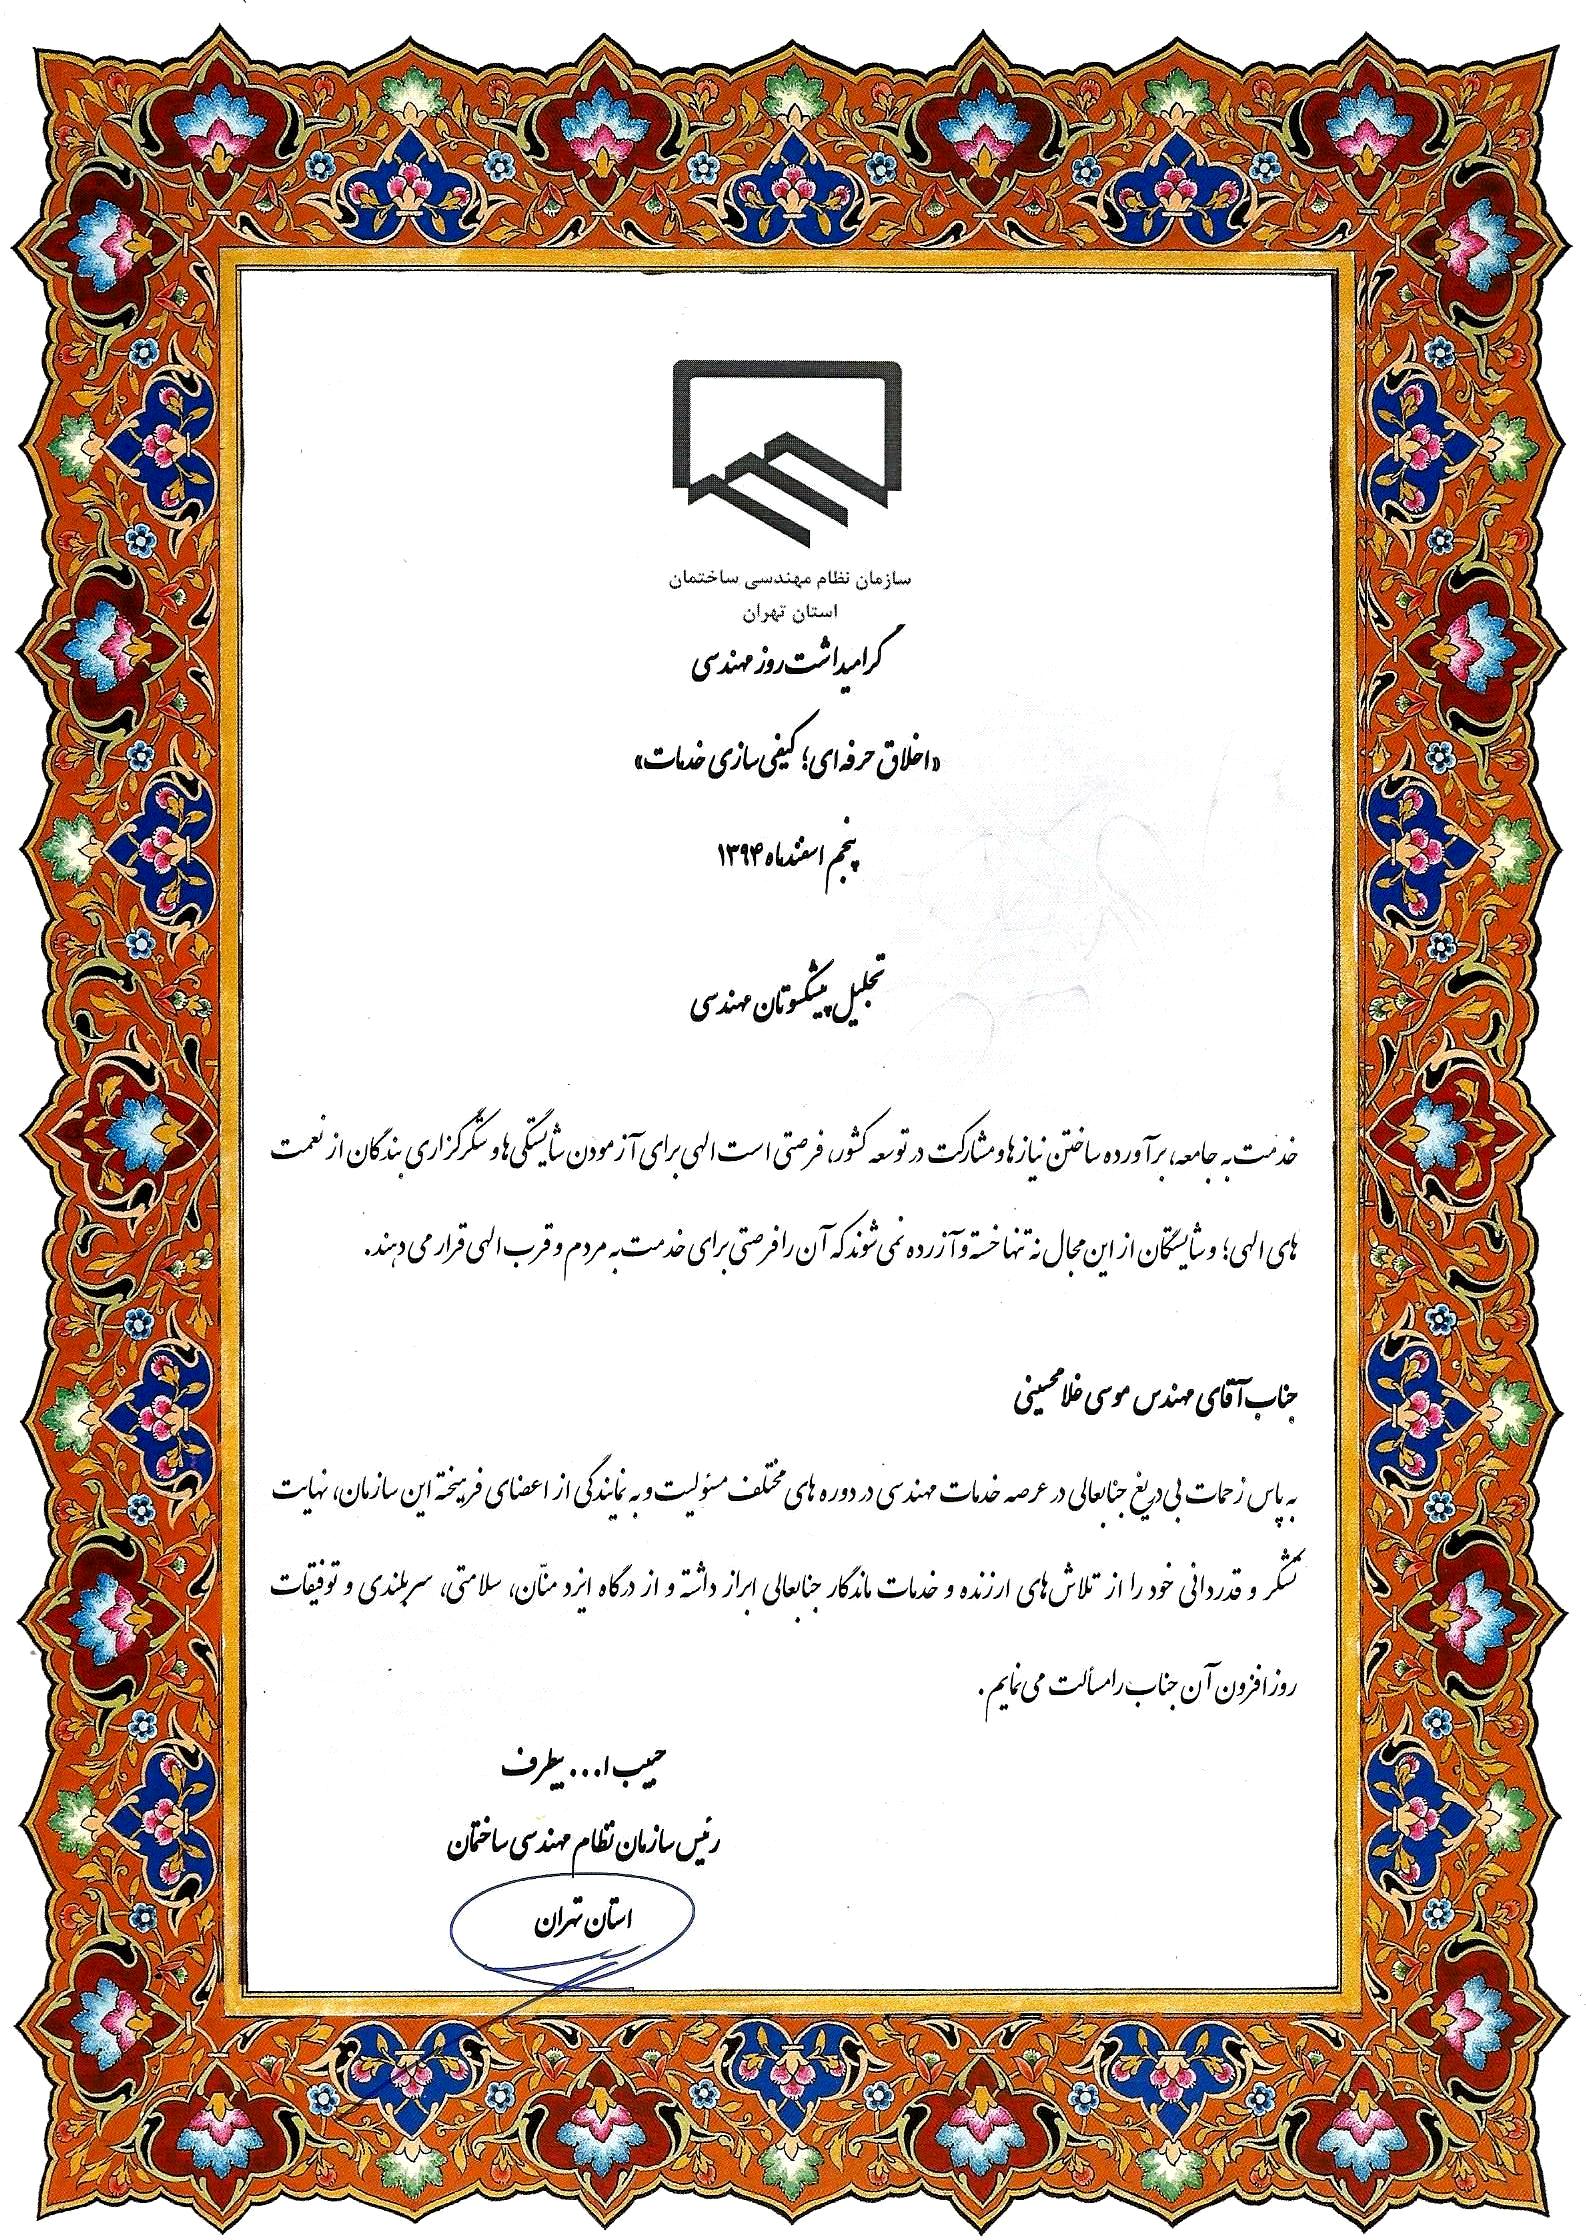 سازمان نظام مهندسی ساختمان
استان تهران
گرامیداشت روز مهندسی
«اخلاق حرفه ای؛ کیفی سازی خدمات»
پنجم اسفندماه ۱۳۹۴
تجلیل پیشکسوتان مهندسی
خدمت به جامعه، برآورده ساختن نیازها و مشارکت در توسعه کشور، فرصتی است الهی برای آزمودن شایستگی ها و شکرگزاری بندگان از نعمت
های الهی؛ و شایستگان از این مجال نه تنها خسته و آزرده نمی شوند که آن را فرصتی برای خدمت به مردم و قرب الهی قرار می دهند.
جناب آقای مهندس موسی غلامحسینی
به پاس زحمات بی دریغ جنابعالی در عرصه خدمات مهندسی در دوره های مختلف مسئولیت و به نمایندگی از اعضای فرهیخته این سازمان، نهایت
تشکر و قدردانی خود را از تلاش های ارزنده و خدمات ماندگار جنابعالی ابراز داشته و از درگاه ایزد منّان، سلامتی، سربلندی و توفیقات
روزافزون آن جناب را مسألت می نمایم.
حبیب ا... بیطرف
رئیس سازمان نظام مهندسی ساختمان
استان تهران